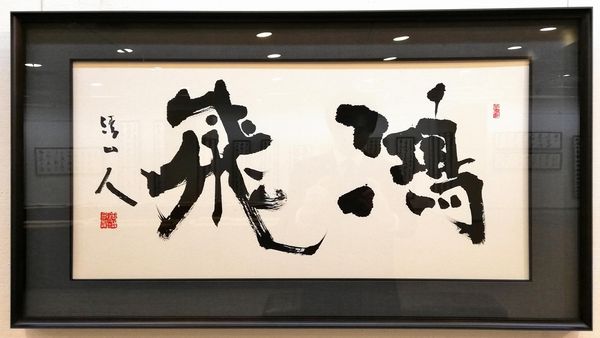 鴻飛
山人